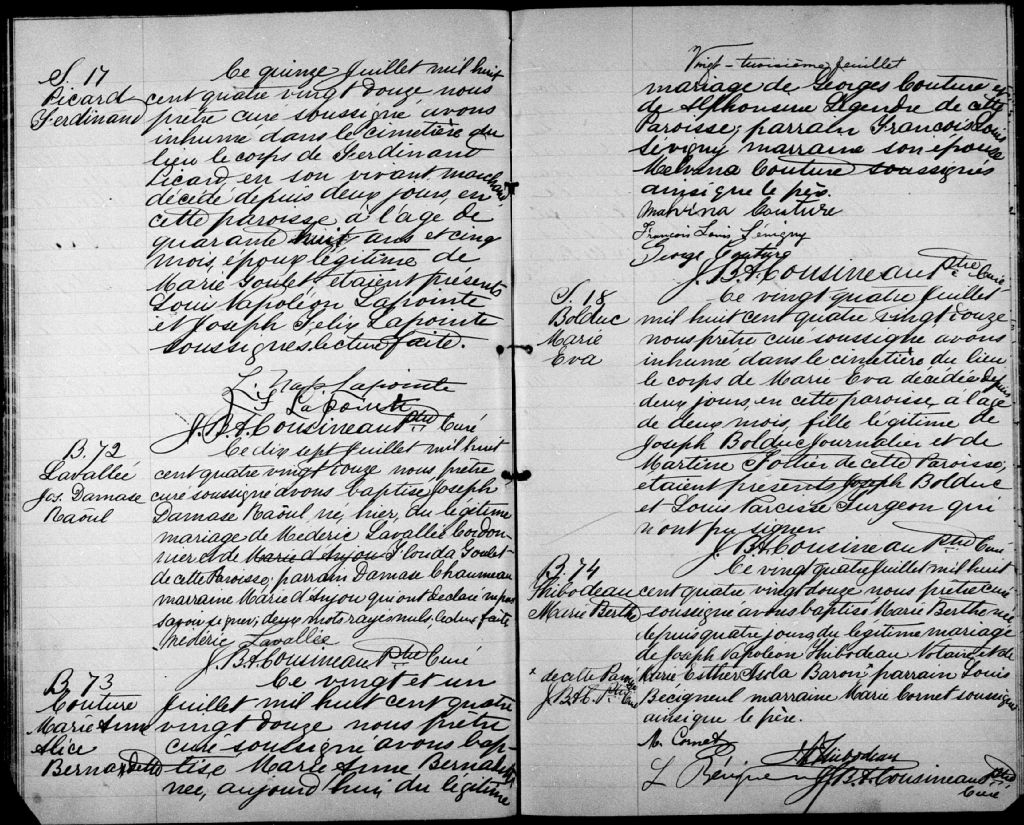 S. 17
Picard
Ferdinand
Ce quinze Juillet mil huit
cent quatre vingt douze nous
prêtre curé soussigné avons
inhumé dans le cimetière du
lieu le corps de Ferdinand
Picard en son vivant marchand
décédé depuis deux jours, en
cette paroisse à l'age de
quarante huit ans et cinq
mois, époux légitime de
Marie Goulet, etaient présents
Louis Napoléon Lapointe
et Joseph Felix Lapointe
soussignés lecture faite.
L. Nap. Lapointe
J F Lapointe
J. B. A. Cousineau Ptre Curé
B. 72
Lavallée
Jos. Damase
Raöul
Ce dix sept Juillet mil huit
cent quatre vingt douze nous prêtre
curé soussigné avons baptisé Joseph
Damase Raöul né, hier, du légitime
mariage de Mederic Lavallée Cordon-
nier et de Marie d'Anjou Florida Goulet
de cette Paroisse; parrain Damase
marraine Marie d'Anjou qui ont declaré ne pas
savoir signer; deux mots rayés nuls, lecture faite
Médéric Lavallée
J. B. A. Cousineau Ptre Curé
B. 73
Couture
Marie Anne
Alice
Bernadette
Ce vingt et un
Juillet mil huit cent quatre
vingt douze nous prêtre
curé soussigné avons bap-
tisé Marie Anne Bernadette
née, aujourd'hui, du légitime
Vingt-troisième feuillet
mariage de Georges Couture et
de Alphonsine Legendre de cette
Paroisse; parrain Francois Louis
Sévigny marraine son épouse
Melvina Couture soussignés
ainsi que le père.
Malvina Couture
François Louis Sévigny
George Couture
J. B. A. Cousineau Ptre Curé
S. 18
Bolduc
Marie
Eva
Ce vingt quatre Juillet
mil huit cent quatre vingt douze
nous prêtre curé soussigné avons
inhumé dans le cimetière du lieu
le corps de Marie Eva décédée depuis
deux jours, en cette paroisse, à l'age
de deux mois, fille légitime de
Joseph Bolduc Journalier et de
Martine Fortier de cette Paroisse;
etaient présents Joseph Bolduc
et Louis Narcisse Turgeon qui
n'ont pu signer.
J. B. A. Cousineau Ptre Curé
B. 74
Thibodeau
Marie Berthe
Ce vingt quatre Juillet mil huit
cent quatre vingt douze nous prêtre curé
soussigné avons baptisé Marie Berthe née
depuis quatre jours, du légitime mariage
de Joseph Napoleon Thibodeau Notaire et de
Marie Esther Isola Baron* parrain Louis
* de cette Paroisse
J. B. A. C. Ptre Curé
Becigneul marraine Marie Cornet soussignés
ainsi que le père.
M. Cornet
Thibodeau
L
J. B. A. Cousineau Ptre
Curé